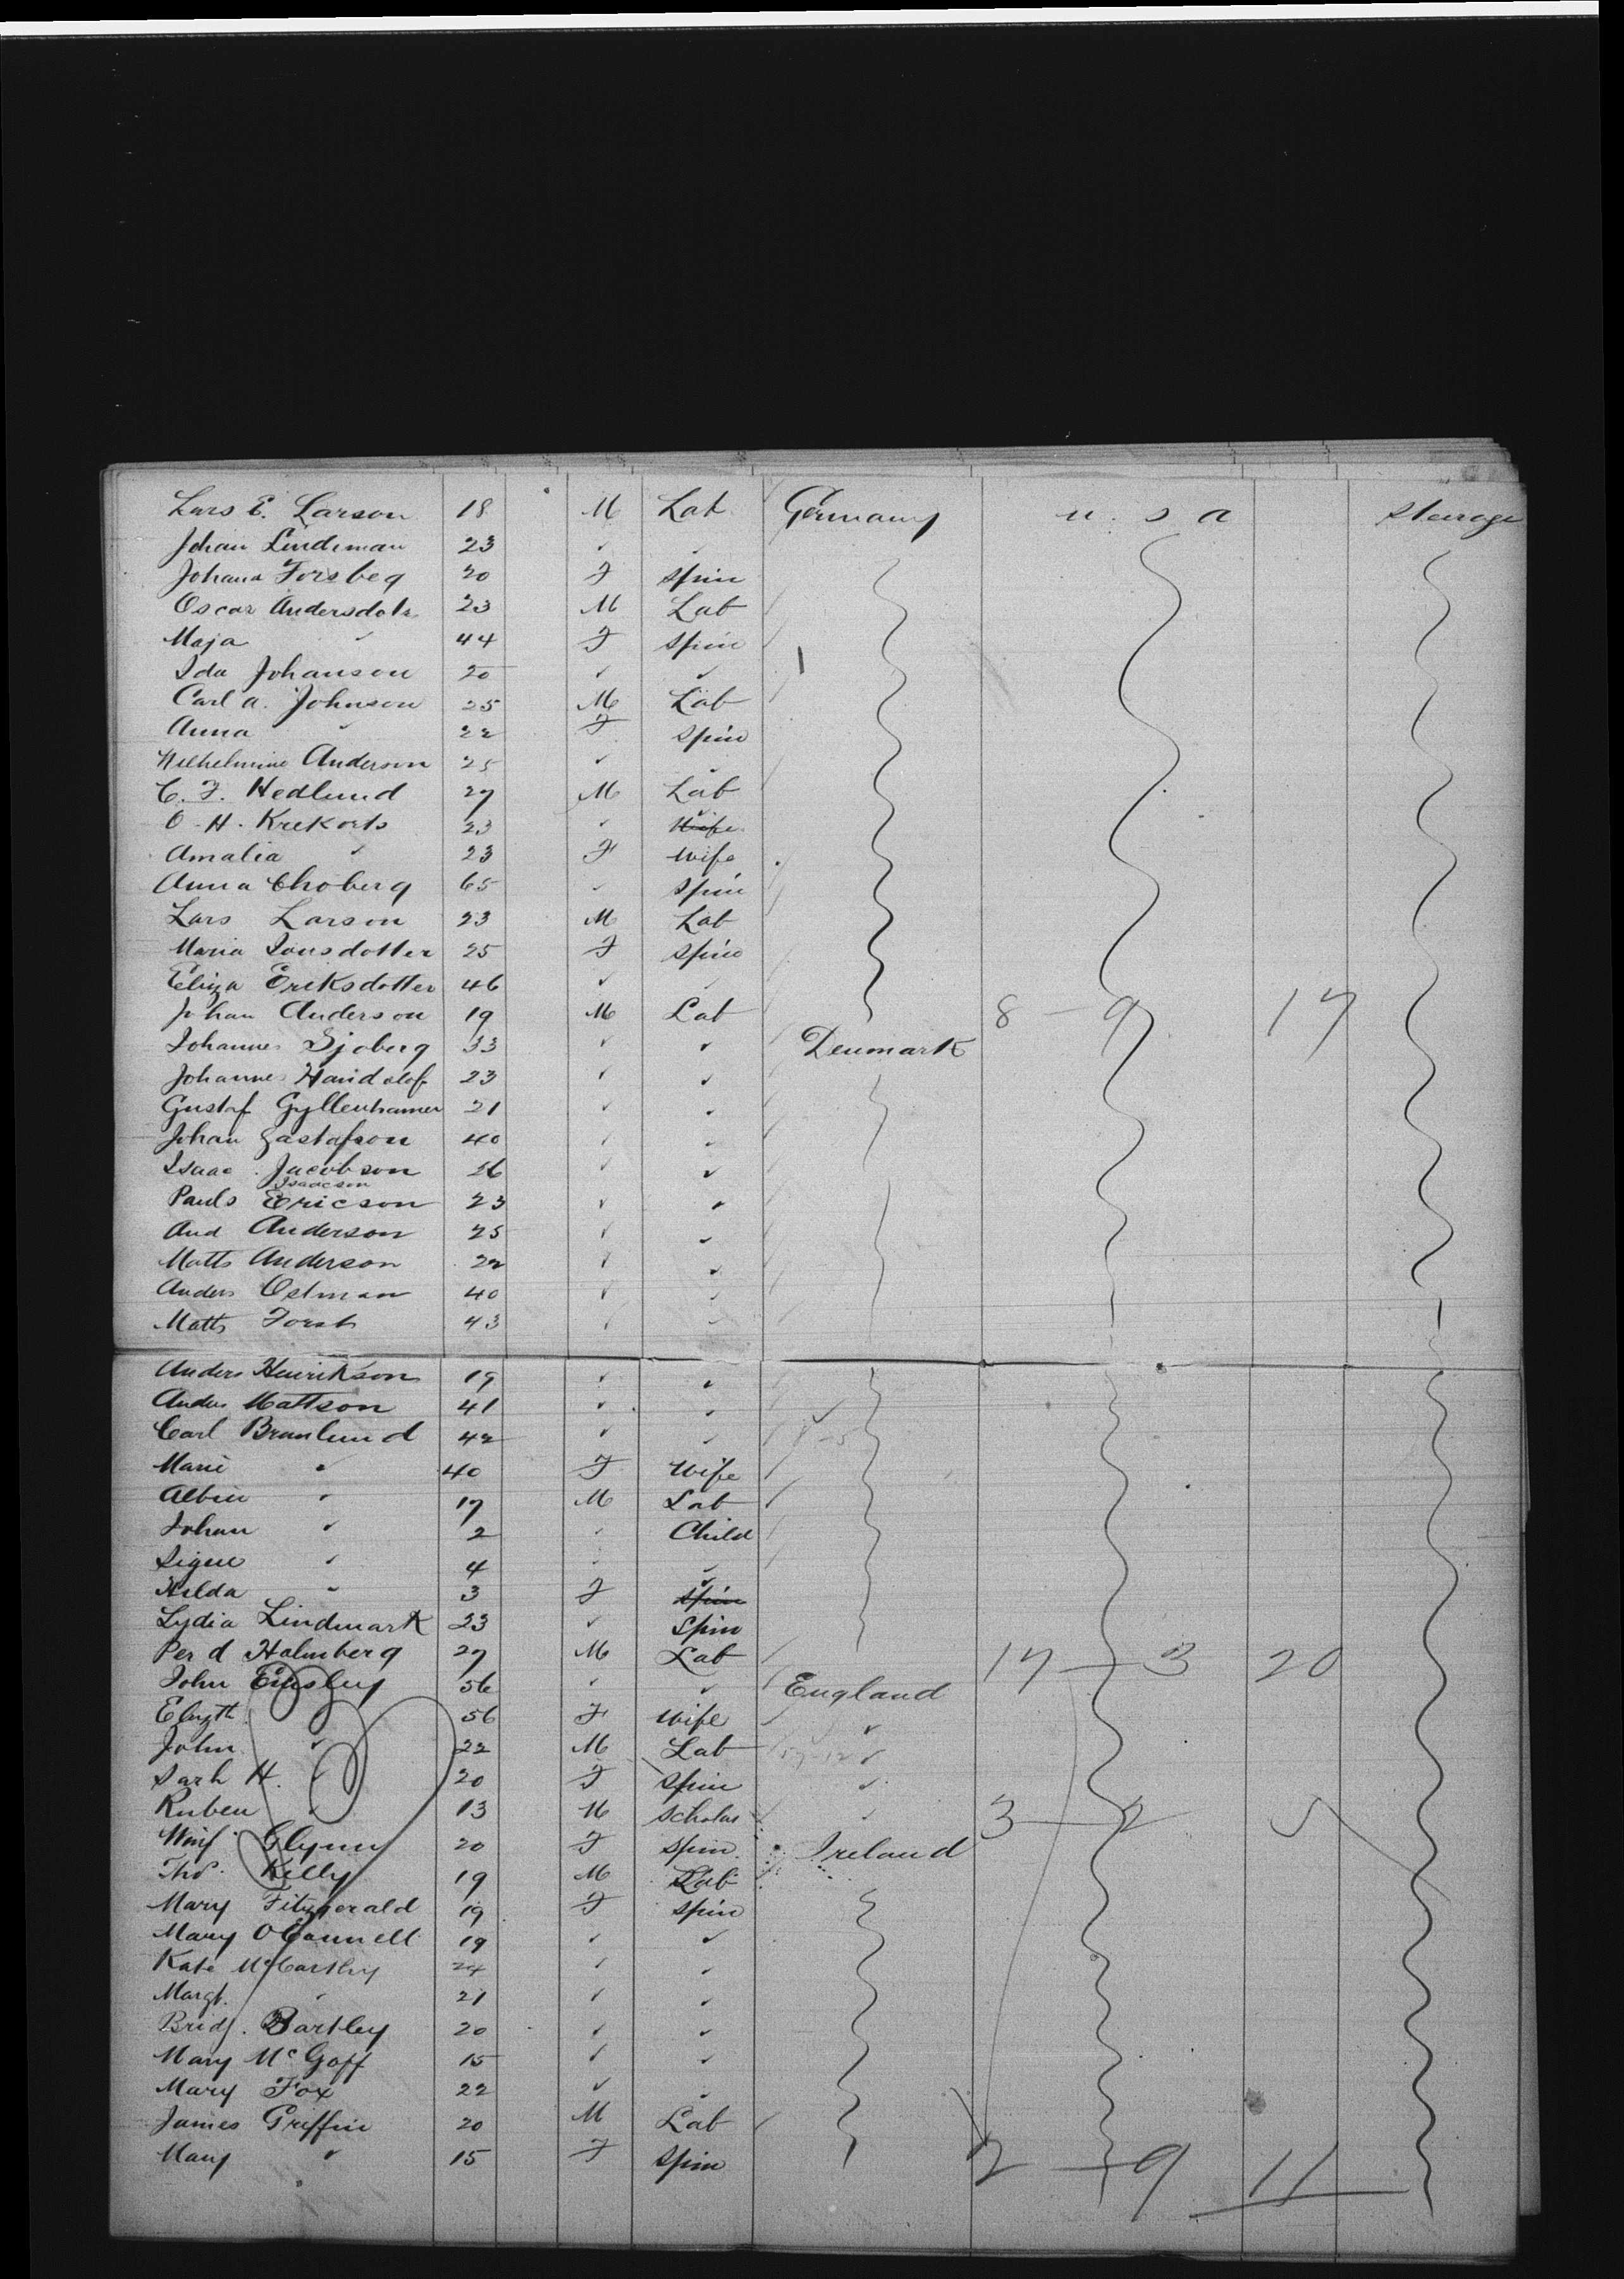 Lars E. Larson 18 M Lab Germany U.S.A Steerage
Johan Lindeman 23 ✓ ✓
Johana Forsbeg 20 F Spin
Oscar Andersdotr 23 M Lab
Maja ✓ 44 F Spin
Ida Johanson 20 ✓ ✓
Carl A. Johnson 25 M Lab
Anna ✓ 22 F Spin
Wilhelmine Anderson 25 ✓ ✓
C. F. Hedlund 27 M Lab
O. H. Krekorts 23 ✓ ✓ Wife
Amalia ✓ 23 F Wife
Anna Choberg 65 ✓ Spin
Lars Larson 23 M Lab
Maria Jansdotter 25 F Spin
Eliza Eriksdotter 46 ✓ ✓
Johan Anderson 19 M Lab 8 - 9 17
Johannes Sjoberg 33 ✓ ✓ Denmark
Johannes 23 ✓ ✓
Gustaf Gyllenhamer 21 ✓ ✓
Johan Gastafson 40 ✓ ✓
Isaac Jacobson 26 ✓ ✓
Isaacson
Pauls Ericson 23 ✓ ✓
And Anderson 25 ✓ ✓
Matts Anderson 22 ✓ ✓
Anders Ostman 40 ✓ ✓
Matts Forst 43 ✓ ✓
Anders Henrikson 19 ✓ ✓
Anders Mattson 41 ✓ ✓
Carl Branlund 42 ✓ ✓
Marie ✓ 40 F Wife
Albin ✓ 17 M Lab
Johan ✓ 2 ✓ Child
Signe ✓ 4 ✓ ✓
Hilda ✓ 3 F ✓ Spin
Lydia Lindmark 23 ✓ Spin
Per d Holmberg 27 M Lab 17 - 3 20
John Emsley 56 ✓ ✓ England
Elizth ✓ 56 F Wife ✓
John ✓ 22 M Lab ✓
Sarh H. ✓ 20 F Spin ✓
Ruben ✓ 13 M Scholar ✓ 3 - 2 5
Winf. Glynn 20 F Spin Ireland
Thos. Kelly 19 M Lab
Mary Fitzgerald 19 F Spin
Mary OConnell 19 ✓ ✓
Kate McCarthy 24 ✓ ✓
Margt. ✓ 21 ✓ ✓
Bridj. Bartley 20 ✓ ✓
Mary McGoff 15 ✓ ✓
Mary Fox 22 ✓ ✓
James Griffin 20 M Lab
Mary ✓ 15 F Spin 2 - 9 11